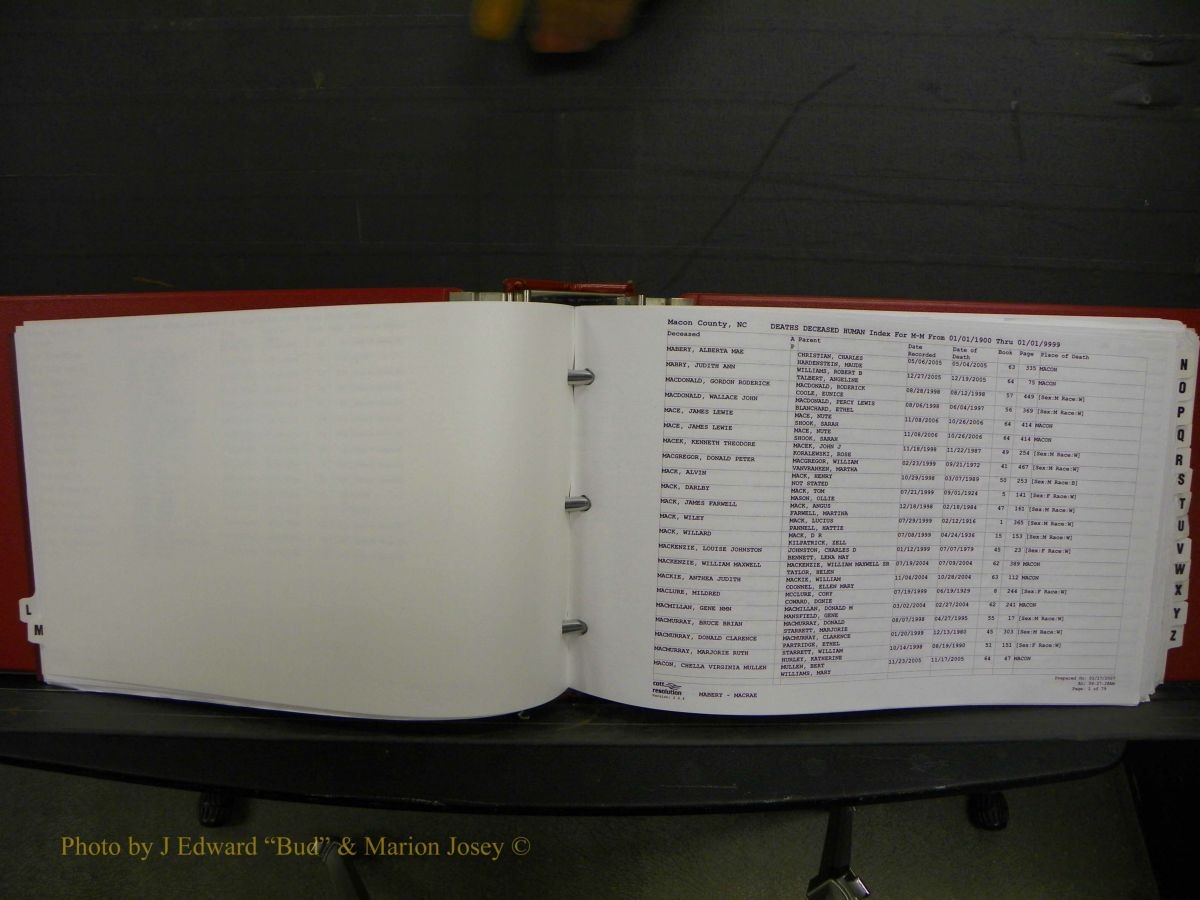 Macon County, NC DEATHS DECEASED HUMAN Index For M-M From 01/01/1900 Thru 01/01/9999
Deceased A Parent Date Date of Book Page Place of Death
P Recorded Death
MABERY, ALBERTA MAE CHRISTIAN, CHARLES 05/06/2005 05/04/2005 63 335 MACON
HARDENSTEIN, MAUDE
MABRY, JUDITH ANN WILLIAMS, ROBERT B 12/27/2005 12/19/2005 64 75 MACON
TALBERT, ANGELINE
MACDONALD, GORDON RODERICK MACDONALD, RODERICK 08/28/1998 08/12/1998 57 449 [Sex:M Race:W]
COOLE, EUNICE
MACDONALD, WALLACE JOHN MACDONALD, PERCY LEWIS 08/06/1998 06/04/1997 56 369 [Sex:M Race:W]
BLANCHARD, ETHEL
MACE, JAMES LEWIE MACE, NUTE 11/08/2006 10/26/2006 64 414 MACON
SHOOK, SARAH
MACE, JAMES LEWIE MACE, NUTE 11/08/2006 10/26/2006 64 414 MACON
SHOOK, SARAH
MACEK, KENNETH THEODORE MACEK, JOHN J 11/18/1998 11/22/1987 49 254 [Sex:M Race:W]
KORALEWSKI, ROSE
MACGREGOR, DONALD PETER MACGREGOR, WILLIAM 02/23/1999 09/21/1972 41 467 [Sex:M Race:W]
VANVRANKEN, MARTHA
MACK, ALVIN MACK, HENRY 10/29/1998 03/07/1989 50 253 [Sex:M Race:B]
NOT STATED
MACK, DARLBY MACK, TOM 07/21/1999 09/01/1924 5 141 [Sex:F Race:W]
MASON, OLLIE
MACK, JAMES FARWELL MACK, ANGUS 12/18/1998 02/18/1984 47 161 [Sex:M Race:W]
FARWELL, MARTINA
MACK, WILEY MACK, LUCIUS 07/29/1999 02/12/1916 1 365 [Sex:M Race:W]
PANNELL, HATTIE
MACK, WILLARD MACK, D R 07/08/1999 04/24/1936 15 153 [Sex:M Race:W]
KILPATRICK, ZELL
MACKENZIE, LOUISE JOHNSTON JOHNSTON, CHARLES D 01/12/1999 07/07/1979 45 23 [Sex:F Race:W]
BENNETT, LENA MAY
MACKENZIE, WILLIAM MAXWELL MACKENZIE, WILLIAM MAXWELL SR 07/19/2004 07/09/2004 62 389 MACON
TAYLOR, HELEN
MACKIE, ANTHEA JUDITH MACKIE, WILLIAM 11/04/2004 10/28/2004 63 112 MACON
ODONNEL, ELLEN MARY
MACLURE, MILDRED MCCLURE, CORY 07/19/1999 06/19/1929 8 244 [Sex:F Race:W]
COWARD, DONIE
MACMILLAN, GENE NMN MACMILLAN, DONALD M 03/02/2004 02/27/2004 62 241 MACON
MANSFIELD, GENE
MACMURRAY, BRUCE BRIAN MACMURRAY, DONALD 08/07/1998 04/27/1995 55 17 [Sex:M Race:W]
STARRETT, MARJORIE
MACMURRAY, DONALD CLARENCE MACMURRAY, CLARENCE 01/20/1999 12/13/1980 45 303 [Sex:M Race:W]
PARTRIDGE, ETHEL
MACMURRAY, MARJORIE RUTH STARRETT, WILLIAM 10/14/1998 08/19/1990 51 151 [Sex:F Race:W]
HURLEY, KATHERINE
MACON, CHELLA VIRGINIA MULLEN MULLEN, BERT 11/23/2005 11/17/2005 64 47 MACON
WILLIAMS, MARY
cott
resolution
MABERY - MACRAE
Prepared On: 01/17/2007
Page: 1 of 79
N
O
P
Q
R
S
T
U
V
W
X
Y
Z
L
M
Photo by J Edward “Bud” & Marion Josey ©